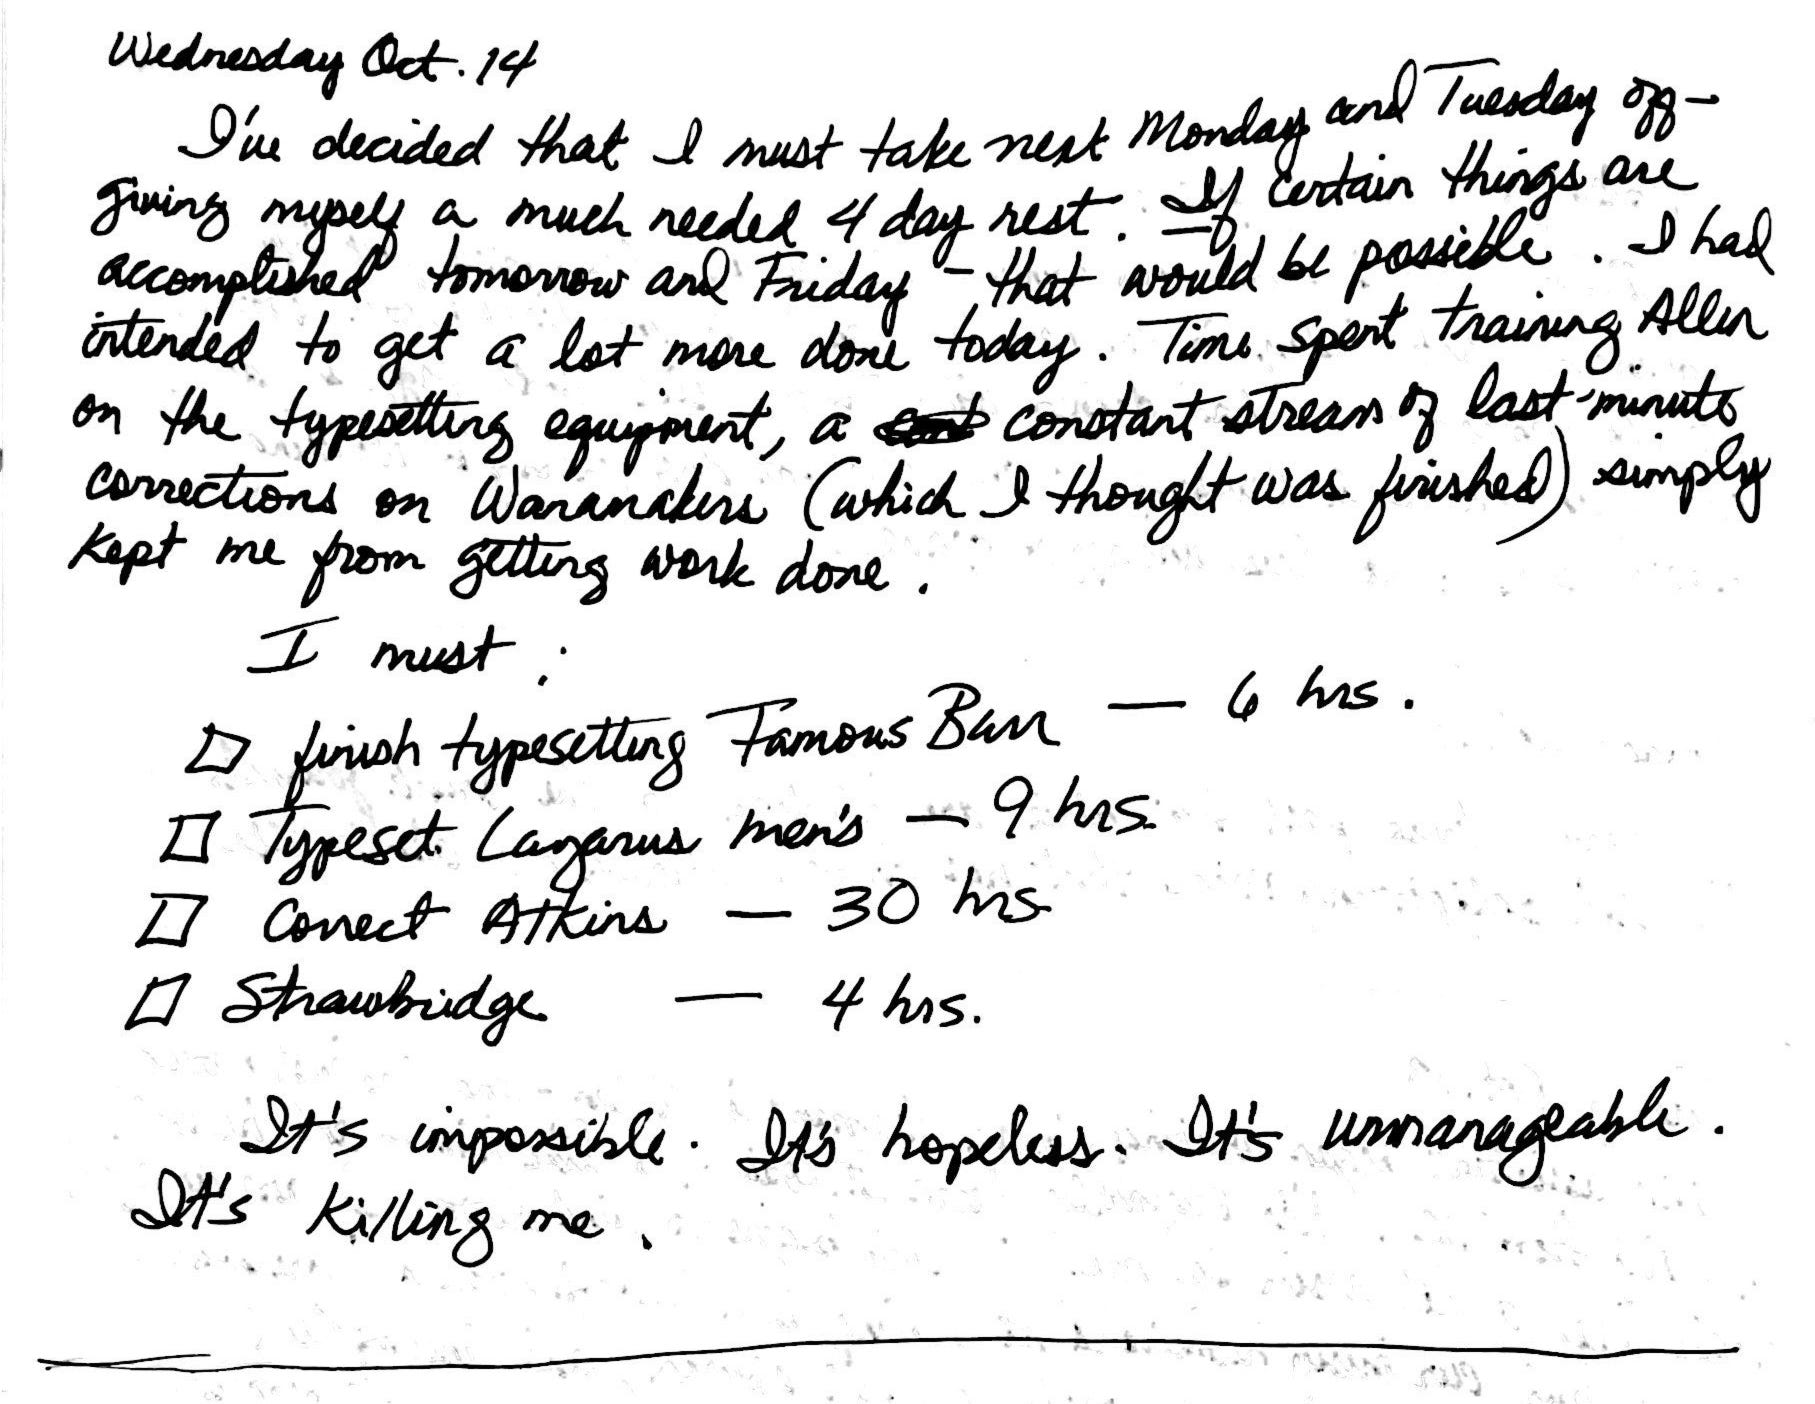 Wednesday Oct. 14
I've decided that I must take next Monday and Tuesday off -
giving myself a much needed 4 day rest. If certain things are
accomplished tomorrow and Friday - that would be possible. I had
intended to get a lot more done today. Time spent training Allen
on the typesetting equipment, a constant stream of last-minute
corrections on Wanamakers (which I thought was finished) simply
kept me from getting work done.
I must:
□ finish typesetting Famous Barr — 6 hrs.
□ Typeset Lazarus men's — 9 hrs.
□ Correct Atkins — 30 hrs
□ Strawbridge — 4 hrs.
It's impossible. It's hopeless. It's unmanageable.
It's killing me.